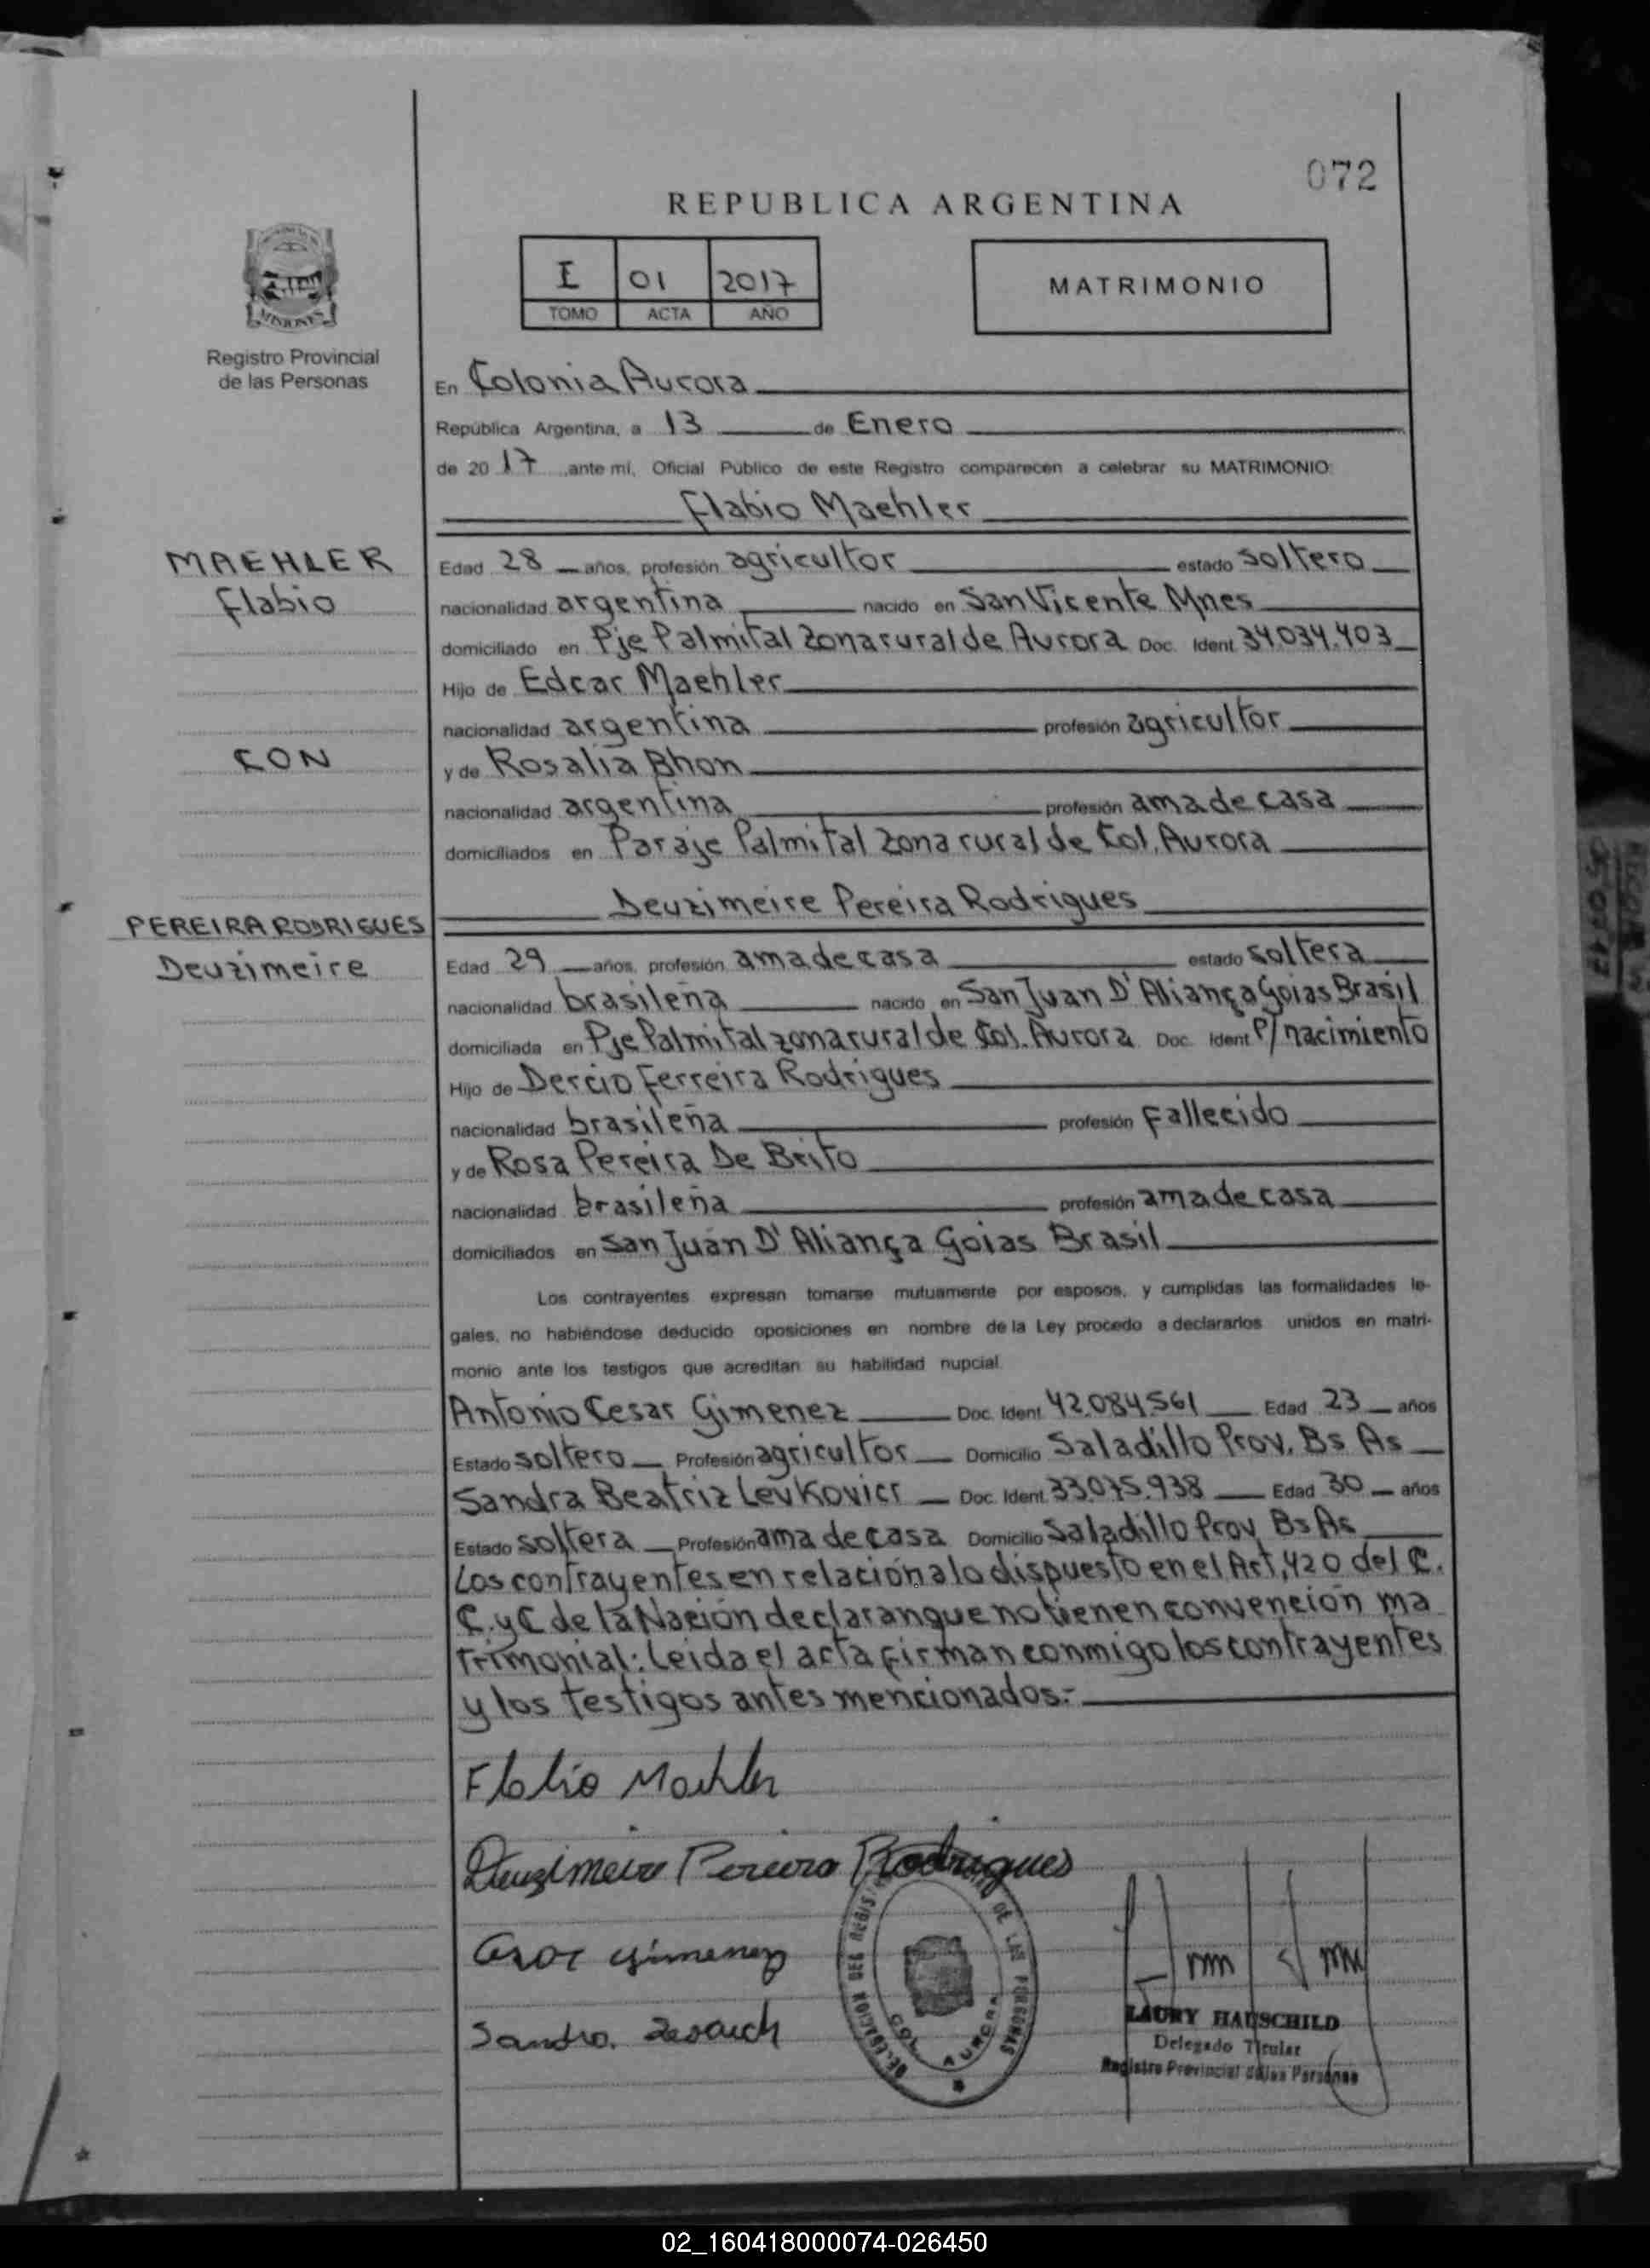 072
REPUBLICA ARGENTINA
I 01 2017
TOMO ACTA AÑO
MATRIMONIO
MISIONES
Registro Provincial
de las Personas
En Colonia Aurora
República Argentina, a 13 de Enero
de 20 17 ,ante mí, Oficial Público de este Registro comparecen a celebrar su MATRIMONIO:
Flabio Maehler
MAEHLER
Flabio
Edad 28 años, profesión agricultor estado soltero
nacionalidad argentina nacido en San Vicente Mnes
domiciliado en Pje Palmital Zona rural de Aurora Doc. Ident 34.034.403
Hijo de Edcar Maehler
nacionalidad argentina profesión agricultor
CON
y de Rosalia Bhon
nacionalidad argentina profesión ama de casa
domiciliados en Paraje Palmital zona rural de Col. Aurora
Deuzimeire Pereira Rodrigues
PEREIRA RODRIGUES
Deuzimeire
Edad 29 años, profesión ama de casa estado soltera
nacionalidad brasileña nacido en San Juan D' Aliança Goias Brasil
domiciliada en Pje Palmital zona rural de Col. Aurora Doc. Ident P/ nacimiento
Hijo de Dercio Ferreira Rodrigues
nacionalidad brasileña profesión Fallecido
y de Rosa Pereira De Brito
nacionalidad brasileña profesión ama de casa
domiciliados en San Juan D' Aliança Goias Brasil
Los contrayentes expresan tomarse mutuamente por esposos, y cumplidas las formalidades le-
gales, no habiéndose deducido oposiciones en nombre de la Ley procedo a declararlos unidos en matri-
monio ante los testigos que acreditan su habilidad nupcial.
Antonio Cesar Gimenez Doc. Ident 42.084.561 Edad 23 años
Estado soltero Profesión agricultor Domicilio Saladillo Prov. Bs As
Sandra Beatriz Levkovicz Doc. Ident. 33.075.938 Edad 30 años
Estado soltera Profesión ama de casa Domicilio Saladillo Prov Bs As
Los contrayentes en relación a lo dispuesto en el Art, 420 del C.
C. y C de la Nación declaran que no tienen convención ma
trimonial: Leida el acta firman conmigo los contrayentes
y los testigos antes mencionados.-
Flabio Maehler
Deuzimeire Pereira Rodrigues
Cesar Gimenez
Sandra.
DELEGACION DEL REGIS DE LAS PERSONAS
COL AURORA
LAURY HAUSCHILD
Delegado Titular
Registro Provincial de las Personas
02_160418000074-026450